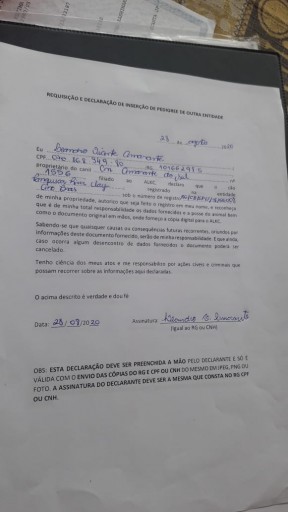 REQUISIÇÃO E DECLARAÇÃO DE INSERÇÃO DE PEDIGREE DE OUTRA ENTIDADE
28 de agosto 2020
Eu
CPF RG
proprietário do canil
filiado ao ALKC, declara que o cão
registrado na entidade
sob o número de registro
de minha propriedade, autorizo que seja feito o registro em meu nome, e reconheço
que é de minha total responsabilidade os dados fornecidos e a posse do animal bem
como o documento original em mãos, onde forneço a cópia digital para o ALKC.
Sabendo-se que quaisquer causas ou consequências futuras recorrentes, oriundos por
informações deste documento fornecido, serão de minha responsabilidade. E que ainda
caso ocorra algum desencontro de dados fornecidos o documento poderá ser
cancelado.
Tenho ciência dos meus atos e me responsabilizo por ações cíveis e criminais que
possam recorrer sobre as informações aqui declaradas.
O acima descrito é verdade e dou fé
Data: 28/08/2020 Assinatura
(Igual ao RG ou CNH)
OBS. ESTA DECLARAÇÃO DEVE SER PREENCHIDA A MÃO PELO DECLARANTE E SÓ É
VÁLIDA COM O ENVIO DAS CÓPIAS DO RG E CPF OU CNH DO MESMO EM JPEG, PNG OU
FOTO. A ASSINATURA DO DECLARANTE DEVE SER A MESMA QUE CONSTA NO RG CPF
OU CNH.